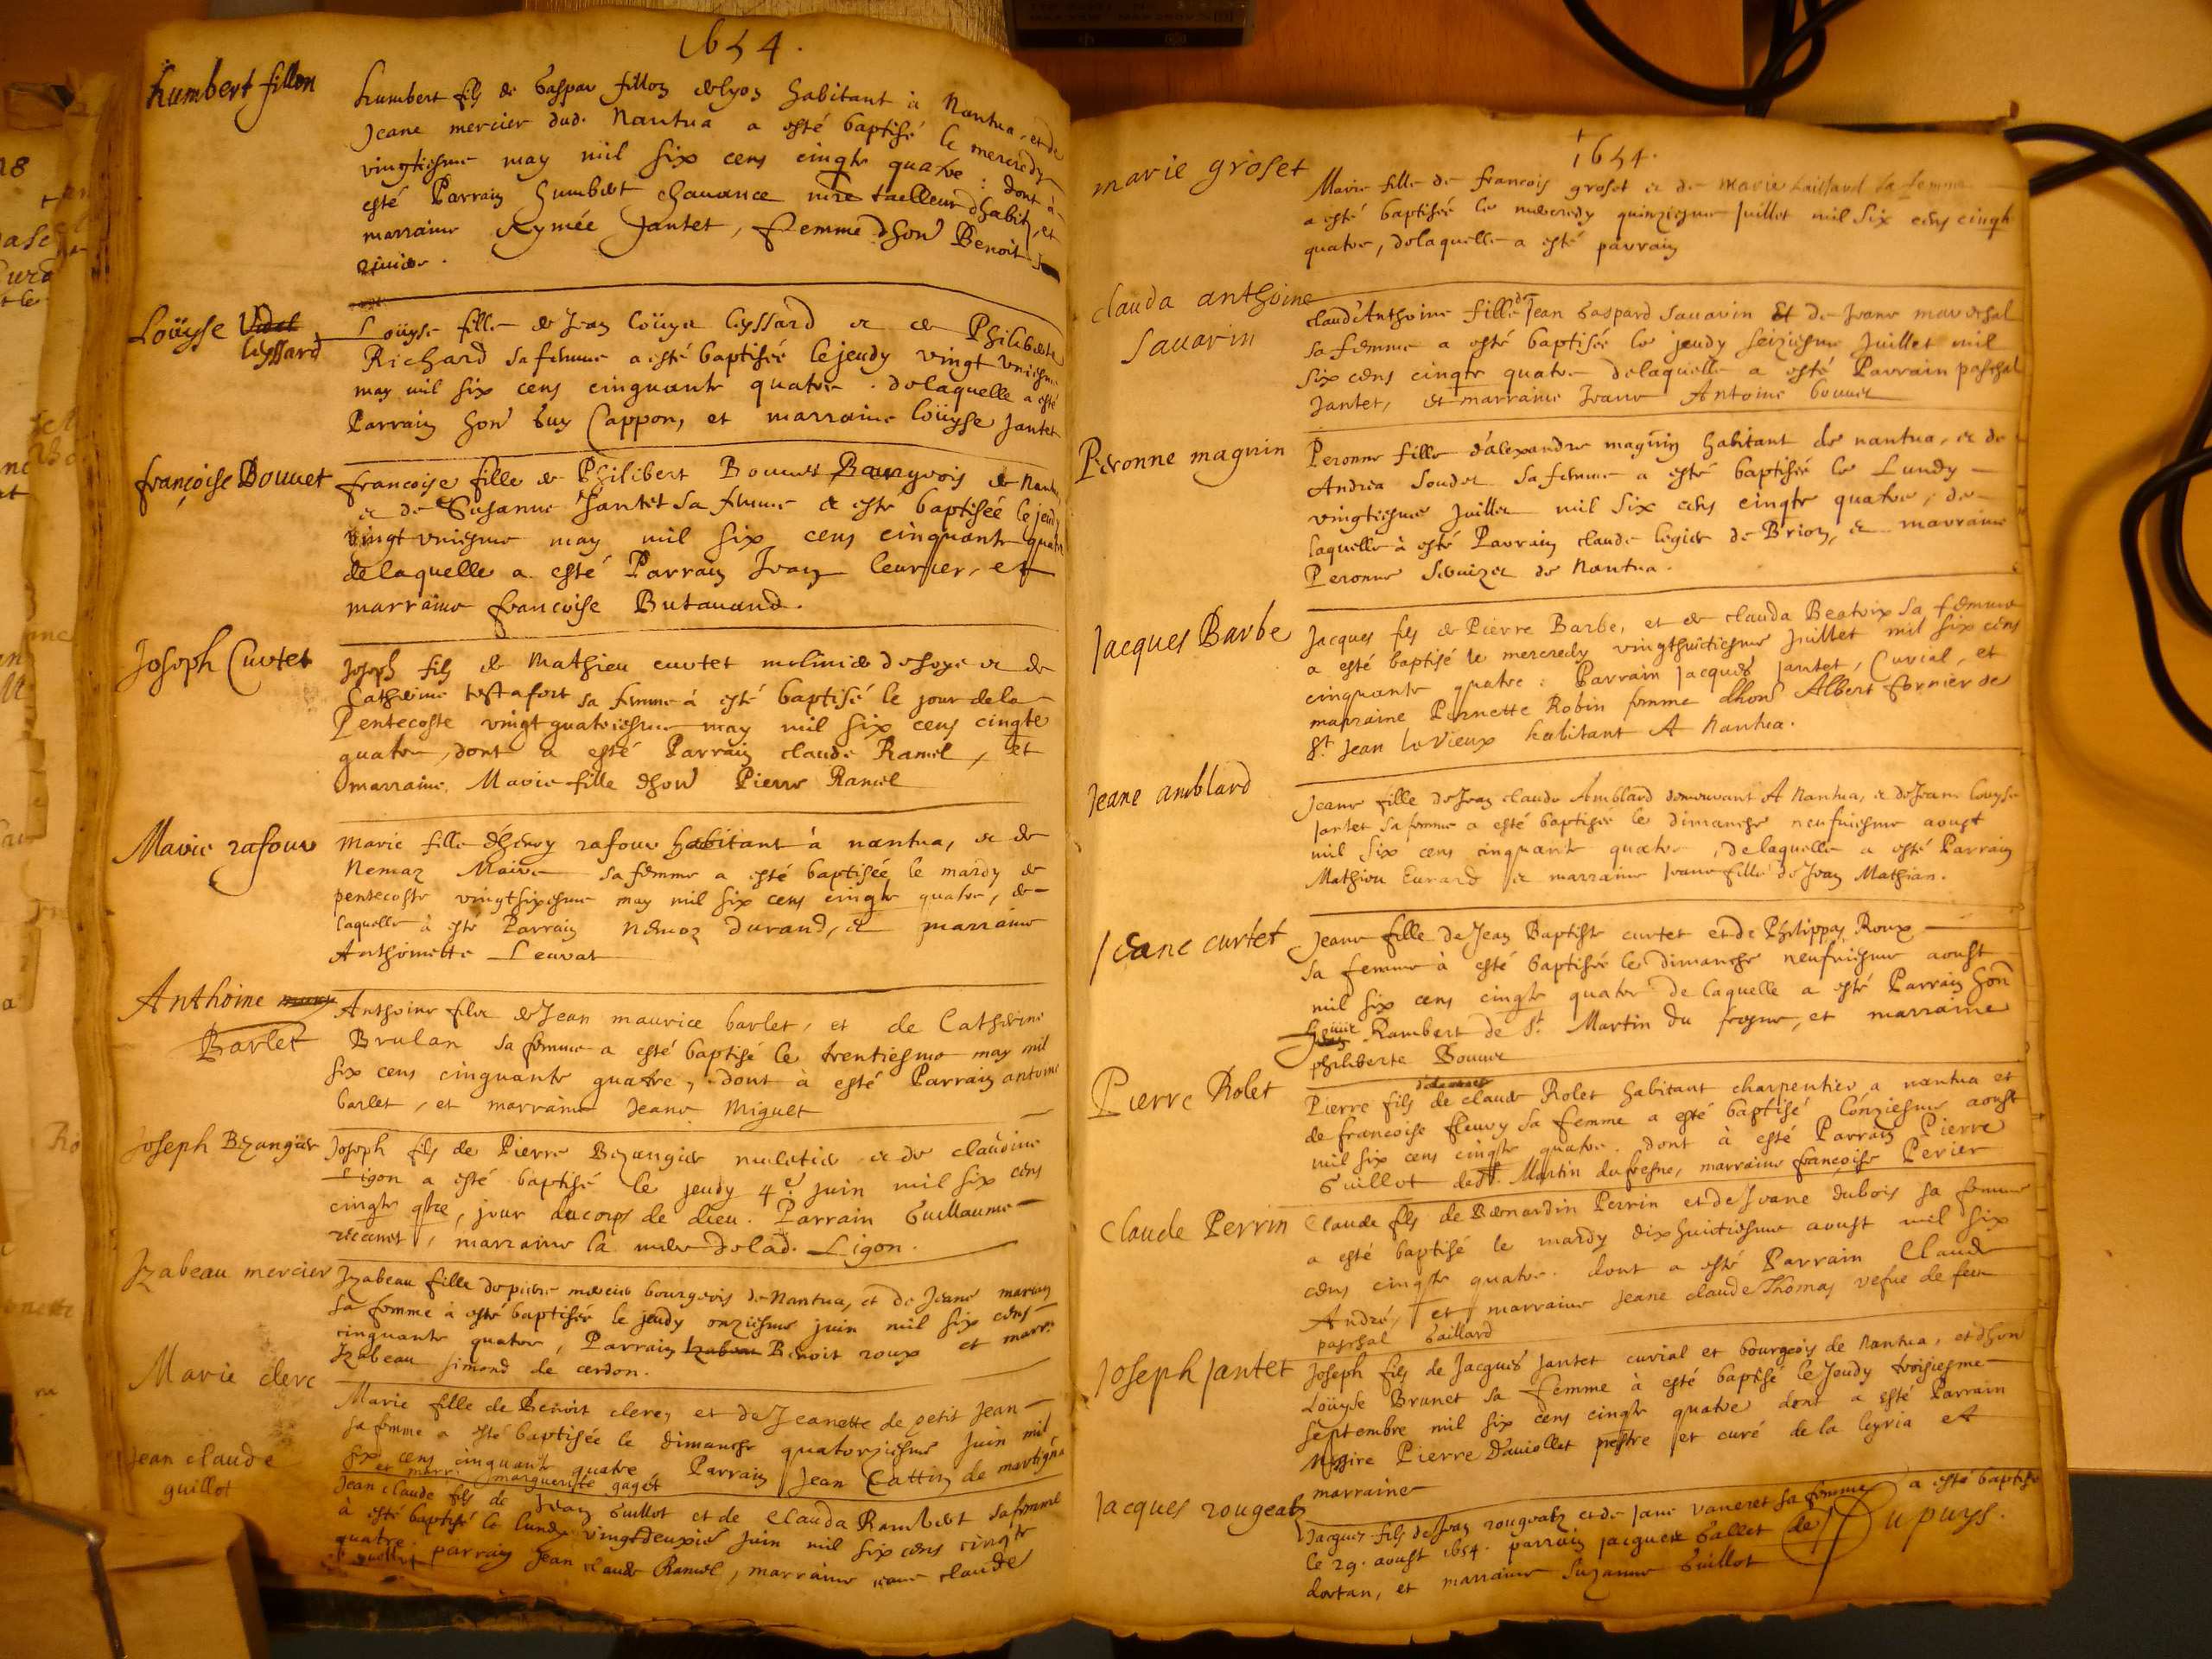 1654.
humbert fillon
humbert fils de Gaspar fillon de lyon habitant à Nantua, et de
Jeane mercier dud. Nantua a esté baptisé le mercredy
vingtiesme may mil six cens cinqte quatre : dont à
esté Parrain humbert chavance mre tailleur dhabitz, et
marraine Aymée Jantet, femme dhon Benoit
Louyse Vidal
leyssard
Louyse fille de Jean louys leyssard et de Philiberte
Richard sa femme a esté baptisée le jeudy vingt uniesme
may mil six cens cinquante quatre. de laquelle a esté
Parrain hon Guy Cappon, et marraine louyse Jantet
françoise Bouuet
francoise fille de Philibert Bouuet Bourgeois de Nantua
et de Susanne Jantet sa femme a esté baptisée le jeudy
vingt uniesme may mil six cens cinquante quatre
de laquelle a esté Parrain Jean leurier, et
marraine francoise Butauand.
Joseph Curtet
Joseph fils de Mathieu curtet molinier de soye et de
Catherine testafort sa femme à esté baptisé le jour de la
Pentecoste vingt quatriesme may mil six cens cinqte
quatre, dont a esté Parrain claude Ramel, et
marraine, Marie fille dhon Pierre Ramel
Marie rafour
Marie fille dhenry rafour habitant à nantua, et de
Nemaz Maire sa femme a esté baptisée le mardy de
pentecoste vingtsixiesme may mil six cens cinqte quatre, de
laquelle à esté Parrain nemoz durand, et marraine
Anthoinette Leuvat
Anthoine
Barlet
Anthoine filz de Jean maurice barlet, et de Catherine
Brulan sa femme a esté baptisé le trentiesme may mil
six cens cinquante quatre, dont à esté Parrain antoine
barlet, et marraine Jeane Miguet
Joseph Bezangier
Joseph fils de Pierre Bezangier muletier et de claudine
Ligon a esté baptisé le jeudy 4e juin mil six cens
cinqte qtre, jour du corps de dieu. Parrain Guillaume
marraine la mere de lad. Ligon.
Izabeau mercier
Izabeau fille de pierre mercier bourgeois de Nantua, et de Jeane
sa femme à esté baptisée le jeudy onziesme juin mil six cens
cinquante quatre, Parrain Izabeau Benoit roux et marr.
Izabeau simond de cerdon.
Marie clerc
Marie fille de Benoit clerc, et de Jeanette de petit Jean
sa femme a esté baptisée le dimanche quatorziesme Juin mil
six cens cinquante quatre Parrain Jean Cattin de martigna
et marr. margueritte gagét
Jean claude
guillot
Jean claude fils de Jean Guillot et de Clauda Rambert sa femme
à esté baptisé le lundy vingtdeuxie juin mil six cens cinqte
quatre. parrain Jean claude Ramel, marraine jeane claude
guillot
1654.
marie groset
Marie fille de francois groset et de Marie Gaillard sa femme
a esté baptisée le mercredy quinziesme Juillet mil six cens cinqte
quatre, de laquelle a esté parrain
clauda anthoine
Sauarin
claud'Anthoine fille de Jean Gaspard Sauarin Et de Jeane mareschal
sa femme a esté baptisée le jeudy seiziesme Juillet mil
six cens cinqte quatre de laquelle a esté Parrain paschal
Jantet, et marraine Jeane Antoine bouuet
Peronne magnin
Peronne fille d'alexandre magnin habitant de nantua, et de
Andrea Soudet sa femme a esté baptisée le Lundy
vingtiesme Juillet mil six cens cinqte quatre, de
laquelle à esté Parrain claude legier de Brion, et marraine
Peronne de Nantua.
Jacques Barbe
Jacques fils de Pierre Barbe, et de clauda Beatrix sa femme
a esté baptisé le mercredy vingthuictiesme Juillet mil six cens
cinquante quatre : Parrain Jacques Jantet, Curial, et
marraine Pernette Robin femme dhon Albert fornier de
St Jean le Vieux habitant A Nantua.
Jeane amblard
Jeane fille de Jean claude Amblard demeurant A Nantua, et de Jeane louyse
Jantet sa femme a esté baptisée le dimanche neufuiesme aoust
mil six cens cinquante quatre, de laquelle a esté Parrain
Mathieu Eurard et marraine Jeane fille de Jean Mathian.
Jeane curtet
Jeane fille de Jean Baptiste curtet et de Philippaz Roux
sa femme à esté baptisée le dimanche neufuiesme aoust
mil six cens cinqte quatre de laquelle a esté Parrain hon
Rambert de St Martin du fresne, et marraine
philiberte Bouuet
Pierre Rolet
Pierre fils de claude Rolet habitant charpentier a nantua et
de francoise fleury sa femme a esté baptisé l'onziesme aoust
mil six cens cinqte quatre. dont à esté Parrain Pierre
Guillot de St. Martin du fresne, marraine françoise Perier
Claude Perrin
Claude fils de Bernardin Perrin et de Jeane dubois sa femme
a esté baptisé le mardy dixhuictiesme aoust mil six
cens cinqte quatre. dont a esté Parrain Claude
André, et marraine Jeane claude Thomas vefue de feu
paschal Gaillard
Joseph Jantet
Joseph fils de Jacques Jantet curial et bourgeois de Nantua, et dhon
Louyse Brunet sa femme à esté baptisé le Jeudy troisiesme
Septembre mil six cens cinqte quatre dont a esté Parrain
Messire Pierre Dauiollet prestre et curé de la leyria et
marraine
Jacques rougeatz
Jacques fils de Jean rougeatz et de Jane vaneret sa femme a esté baptisé
le 29. aoust 1654. parrain jacques Gallet de
dortan, et marraine Suzanne Guillot
Dupuys.